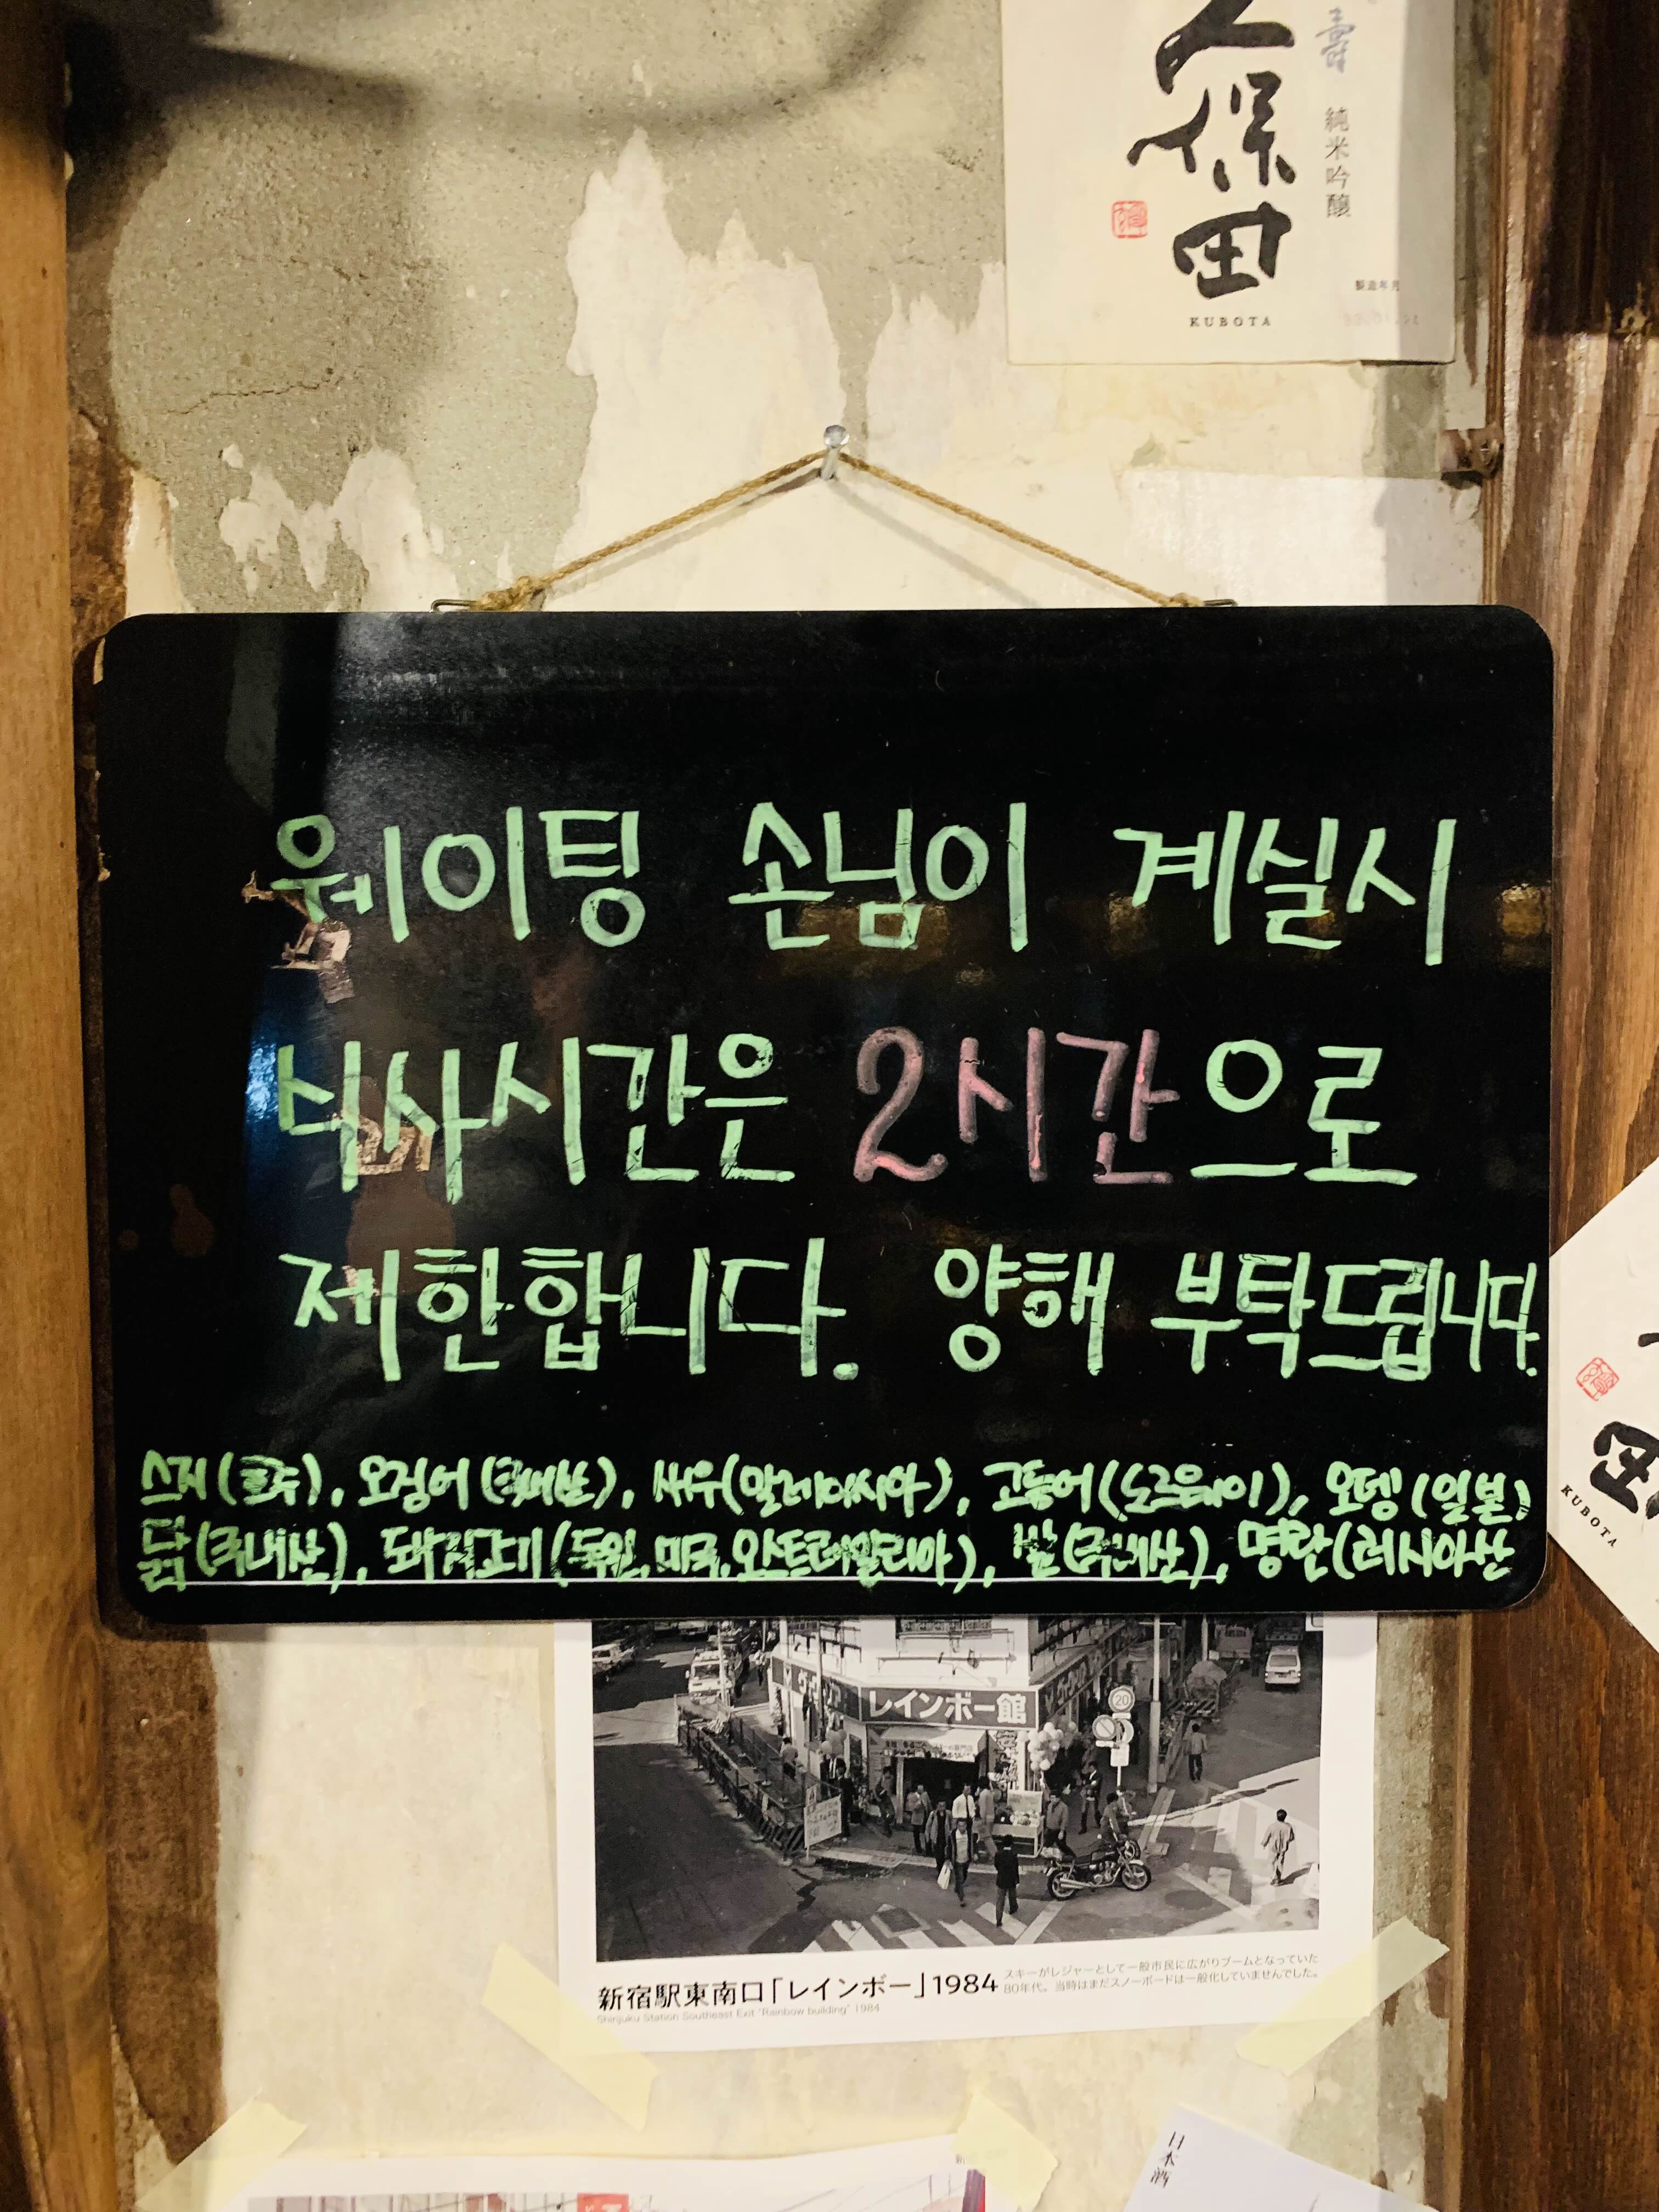 久保田
壽
純米吟醸
製造年月
KUBOTA
웨이팅 손님이 계실시
식사시간은 2시간으로
제한합니다. 양해 부탁드립니다.
스지(호주), 오징어(국내산), 새우(말레이시아), 고등어(노르웨이), 오뎅(일본)
닭(국내산), 돼지고기(독일, 미국, 오스트레일리아), 쌀(국내산), 명란(러시아산
田
KUBOTA
レインボー館
20
新宿駅東南口「レインボー」1984
スキーがレジャーとして一般市民に広がりブームとなっていた
80年代。当時はまだスノーボードは一般化していませんでした。
Shinjuku Station Southeast Exit "Rainbow building" 1984
日本酒